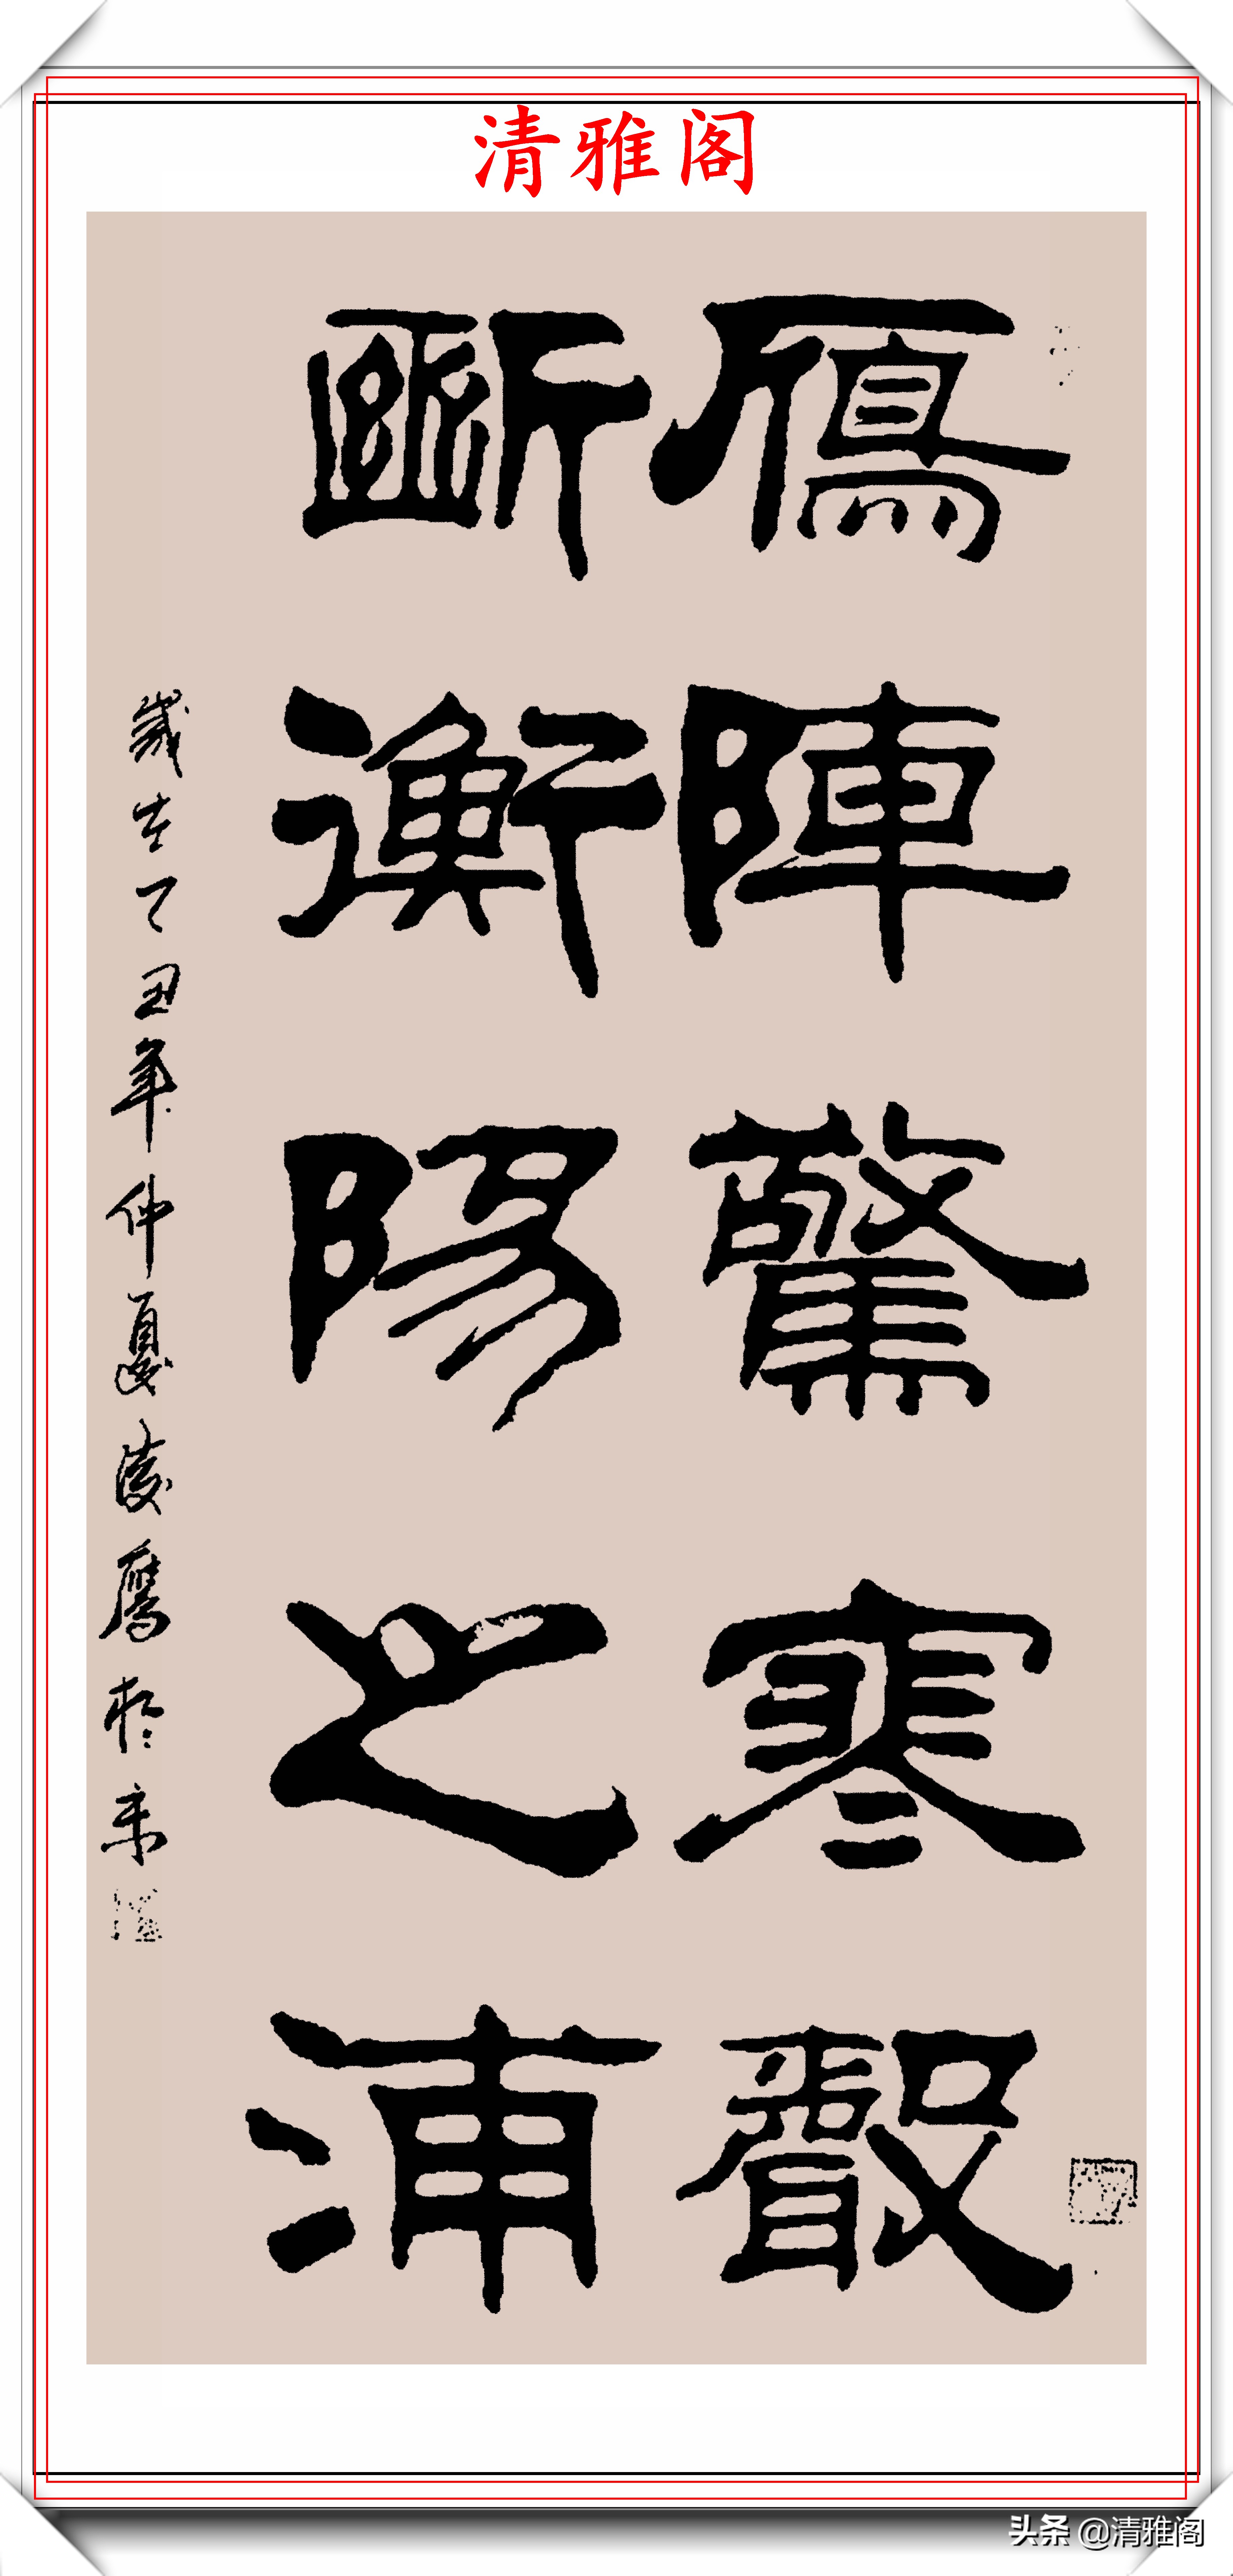 清雅阁
鴈陣驚寒聲
斷衡陽之浦
歲在丁丑年仲夏凌鷹於京
头条 @清雅阁